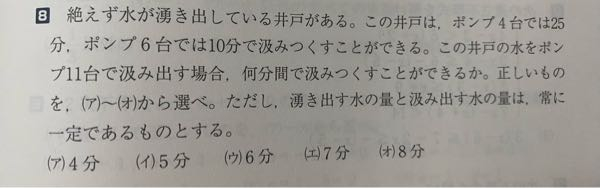 8 絶えず水が湧き出している井戸がある。この井戸は，ポンプ4台では25
分，ポンプ6台では10分で汲みつくすことができる。この井戸の水をポン
プ11台で汲み出す場合，何分間で汲みつくすことができるか。正しいもの
を，(ア)～(オ)から選べ。ただし，湧き出す水の量と汲み出す水の量は，常に
一定であるものとする。
(ア)4分 (イ)5分 (ウ)6分 (エ)7分 (オ)8分